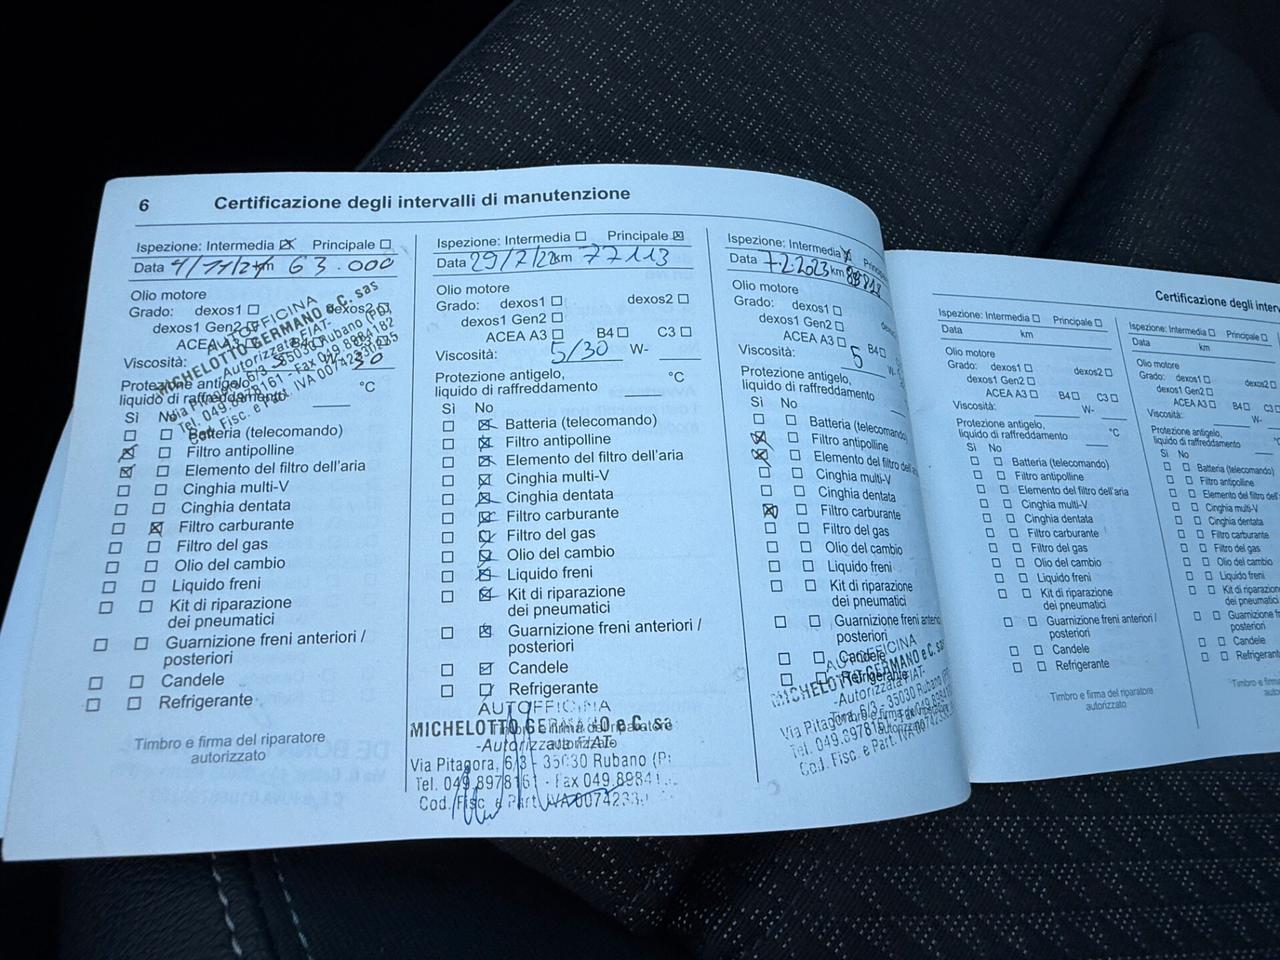 6 Certificazione degli intervalli di manutenzione
Ispezione: Intermedia Principale
Data 4/11/21 km 63.000
Olio motore
Grado: dexos1 dexos2
dexos1 Gen2
ACEA A3 B4
Viscosità: 30
Protezione antigelo,
liquido di raffreddamento °C
Sì No
Batteria (telecomando)
Filtro antipolline
Elemento del filtro dell'aria
Cinghia multi-V
Cinghia dentata
Filtro carburante
Filtro del gas
Olio del cambio
Liquido freni
Kit di riparazione
dei pneumatici
Guarnizione freni anteriori /
posteriori
Candele
Refrigerante
Timbro e firma del riparatore
autorizzato
AUTOFFICINA
MICHELOTTO GERMANO e C. sas
-Autorizzata FIAT-
Via Pitagora, 6/3 - 35030 Rubano (PD)
Tel. 049.8978161 - Fax 049.8984182
Cod. Fisc. e Part. IVA 00742330285
Ispezione: Intermedia Principale
Data 29/7/22 km 77113
Olio motore
Grado: dexos1 dexos2
dexos1 Gen2
ACEA A3 B4 C3
Viscosità: 5/30 W-
Protezione antigelo,
liquido di raffreddamento °C
Sì No
Batteria (telecomando)
Filtro antipolline
Elemento del filtro dell'aria
Cinghia multi-V
Cinghia dentata
Filtro carburante
Filtro del gas
Olio del cambio
Liquido freni
Kit di riparazione
dei pneumatici
Guarnizione freni anteriori /
posteriori
Candele
Refrigerante
Timbro e firma del riparatore
autorizzato
AUTOFFICINA
MICHELOTTO GERMANO e C. sa
-Autorizzata FIAT-
Via Pitagora, 6/3 - 35030 Rubano (P
Tel. 049.8978161 - Fax 049.8984
Cod. Fisc. e Part. IVA 0074233
Ispezione: Intermedia
Data 7-2-2023 km
Olio motore
Grado: dexos1
dexos1 Gen2
ACEA A3 B4
Viscosità: 5 W-
Protezione antigelo,
liquido di raffreddamento
Sì No
Batteria (telecomando)
Filtro antipolline
Elemento del filtro
Cinghia multi-V
Cinghia dentata
Filtro carburante
Filtro del gas
Olio del cambio
Liquido freni
Kit di riparazione
dei pneumatici
Guarnizione freni
posteriori
Candele
Refrigerante
AUTOFFICINA
MICHELOTTO GERMANO e C. sas
-Autorizzata FIAT-
Via Pitagora, 6/3 - 35030 Rubano
Tel. 049.8978161 - Fax 049.8984
Cod. Fisc. e Part. IVA 0074233
Certificazione degli
Ispezione: Intermedia Principale
Data km
Olio motore
Grado: dexos1 dexos2
dexos1 Gen2
ACEA A3 B4 C3
Viscosità: W-
Protezione antigelo,
liquido di raffreddamento °C
Sì No
Batteria (telecomando)
Filtro antipolline
Elemento del filtro dell'aria
Cinghia multi-V
Cinghia dentata
Filtro carburante
Filtro del gas
Olio del cambio
Liquido freni
Kit di riparazione
dei pneumatici
Guarnizione freni anteriori /
posteriori
Candele
Refrigerante
Timbro e firma del riparatore
autorizzato
Ispezione: Intermedia Principale
Data km
Olio motore
Grado: dexos1 dexos2
dexos1 Gen2
ACEA A3 B4 C3
Viscosità: W-
Protezione antigelo,
liquido di raffreddamento °C
Sì No
Batteria (telecomando)
Filtro antipolline
Elemento del filtro
Cinghia multi-V
Cinghia dentata
Filtro carburante
Filtro del gas
Olio del cambio
Liquido freni
Kit di riparazione
dei pneumatici
Guarnizione freni
posteriori
Candele
Refrigerante
Timbro e firma